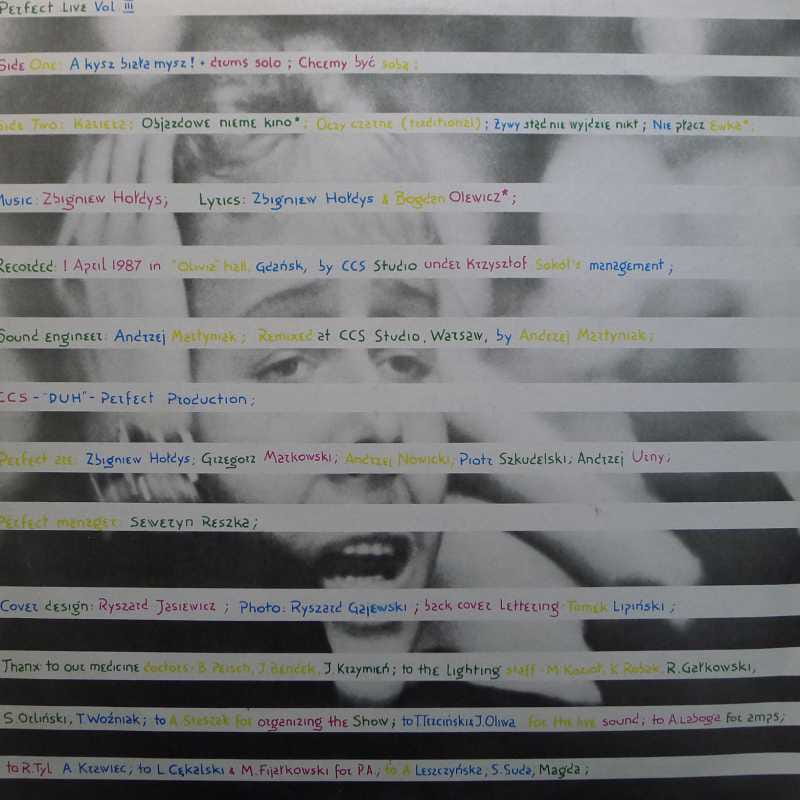 Perfect Live Vol III
Side One: A kysz biała mysz! + drums solo; Chcemy być sobą;
Side Two: Kariera; Objazdowe nieme kino*; Oczy czarne (traditional); Żywy stąd nie wyjdzie nikt; Nie płacz Ewka*.
Music: Zbigniew Hołdys; Lyrics: Zbigniew Hołdys & Bogdan Olewicz*;
Recorded: 1 April 1987 in "Olivia" hall, Gdańsk, by CCS Studio under Krzysztof Sokół's management;
Sound engineer: Andrzej Martyniak; Remixed at CCS Studio, Warsaw, by Andrzej Martyniak;
CCS - "DUH" - Perfect Production;
Perfect are: Zbigniew Hołdys; Grzegorz Markowski; Andrzej Nowicki; Piotr Szkudelski; Andrzej Urny;
Perfect manager: Seweryn Reszka;
Cover design: Ryszard Jasiewicz; Photo: Ryszard Gajewski; back cover Lettering: Tomek Lipiński;
Thanx to our medicine doctors: B. Peisch, J. Bendek, J. Krzymień; to the lighting staff - M. Kozioł, K. Robak, R. Gałkowski,
S. Orliński, T. Woźniak; to A. Staszak for organizing the Show; to T. Trzciński & J. Oliwa for the live sound; to A. Laboga for amps;
to R. Tyl A. Krawiec; to L. Cękalski & M. Fijałkowski for P.A.; to A. Leszczyńska, S. Suda, Magda;